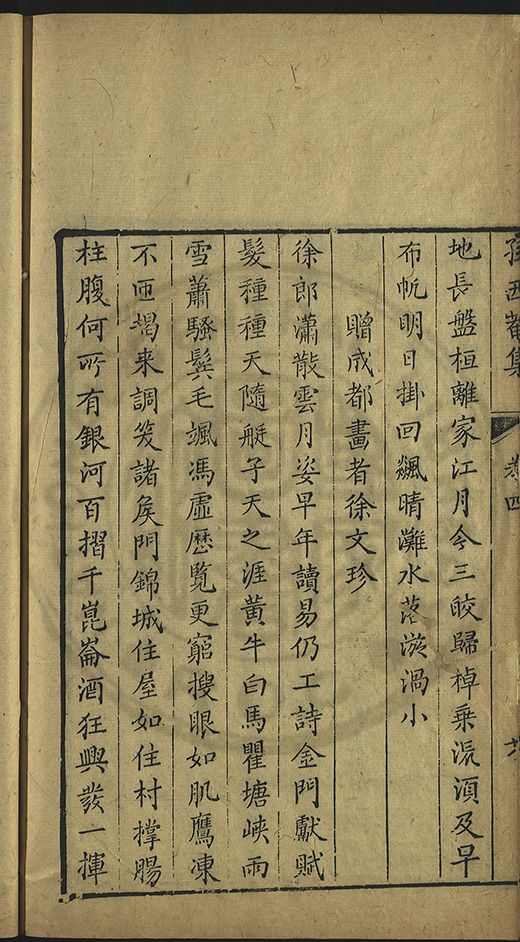 孫西菴集 卷四
地長盤桓離家江月今三皎歸棹乗流湏及早
布帆明日掛回飇晴灘水落漩渦小
贈成都畫者徐文珍
徐郎瀟散雲月姿早年讀易仍工詩金門獻賦
髮種種天隨艇子天之涯黄牛白馬瞿塘峽雨
雪蕭騷鬂毛颯馮虛歷覽更窮搜眼如肌鷹凍
不匝朅来調笑諸矦門錦城住屋如住村撑腸
柱腹何所有銀河百摺千崑崙酒狂興發一揮